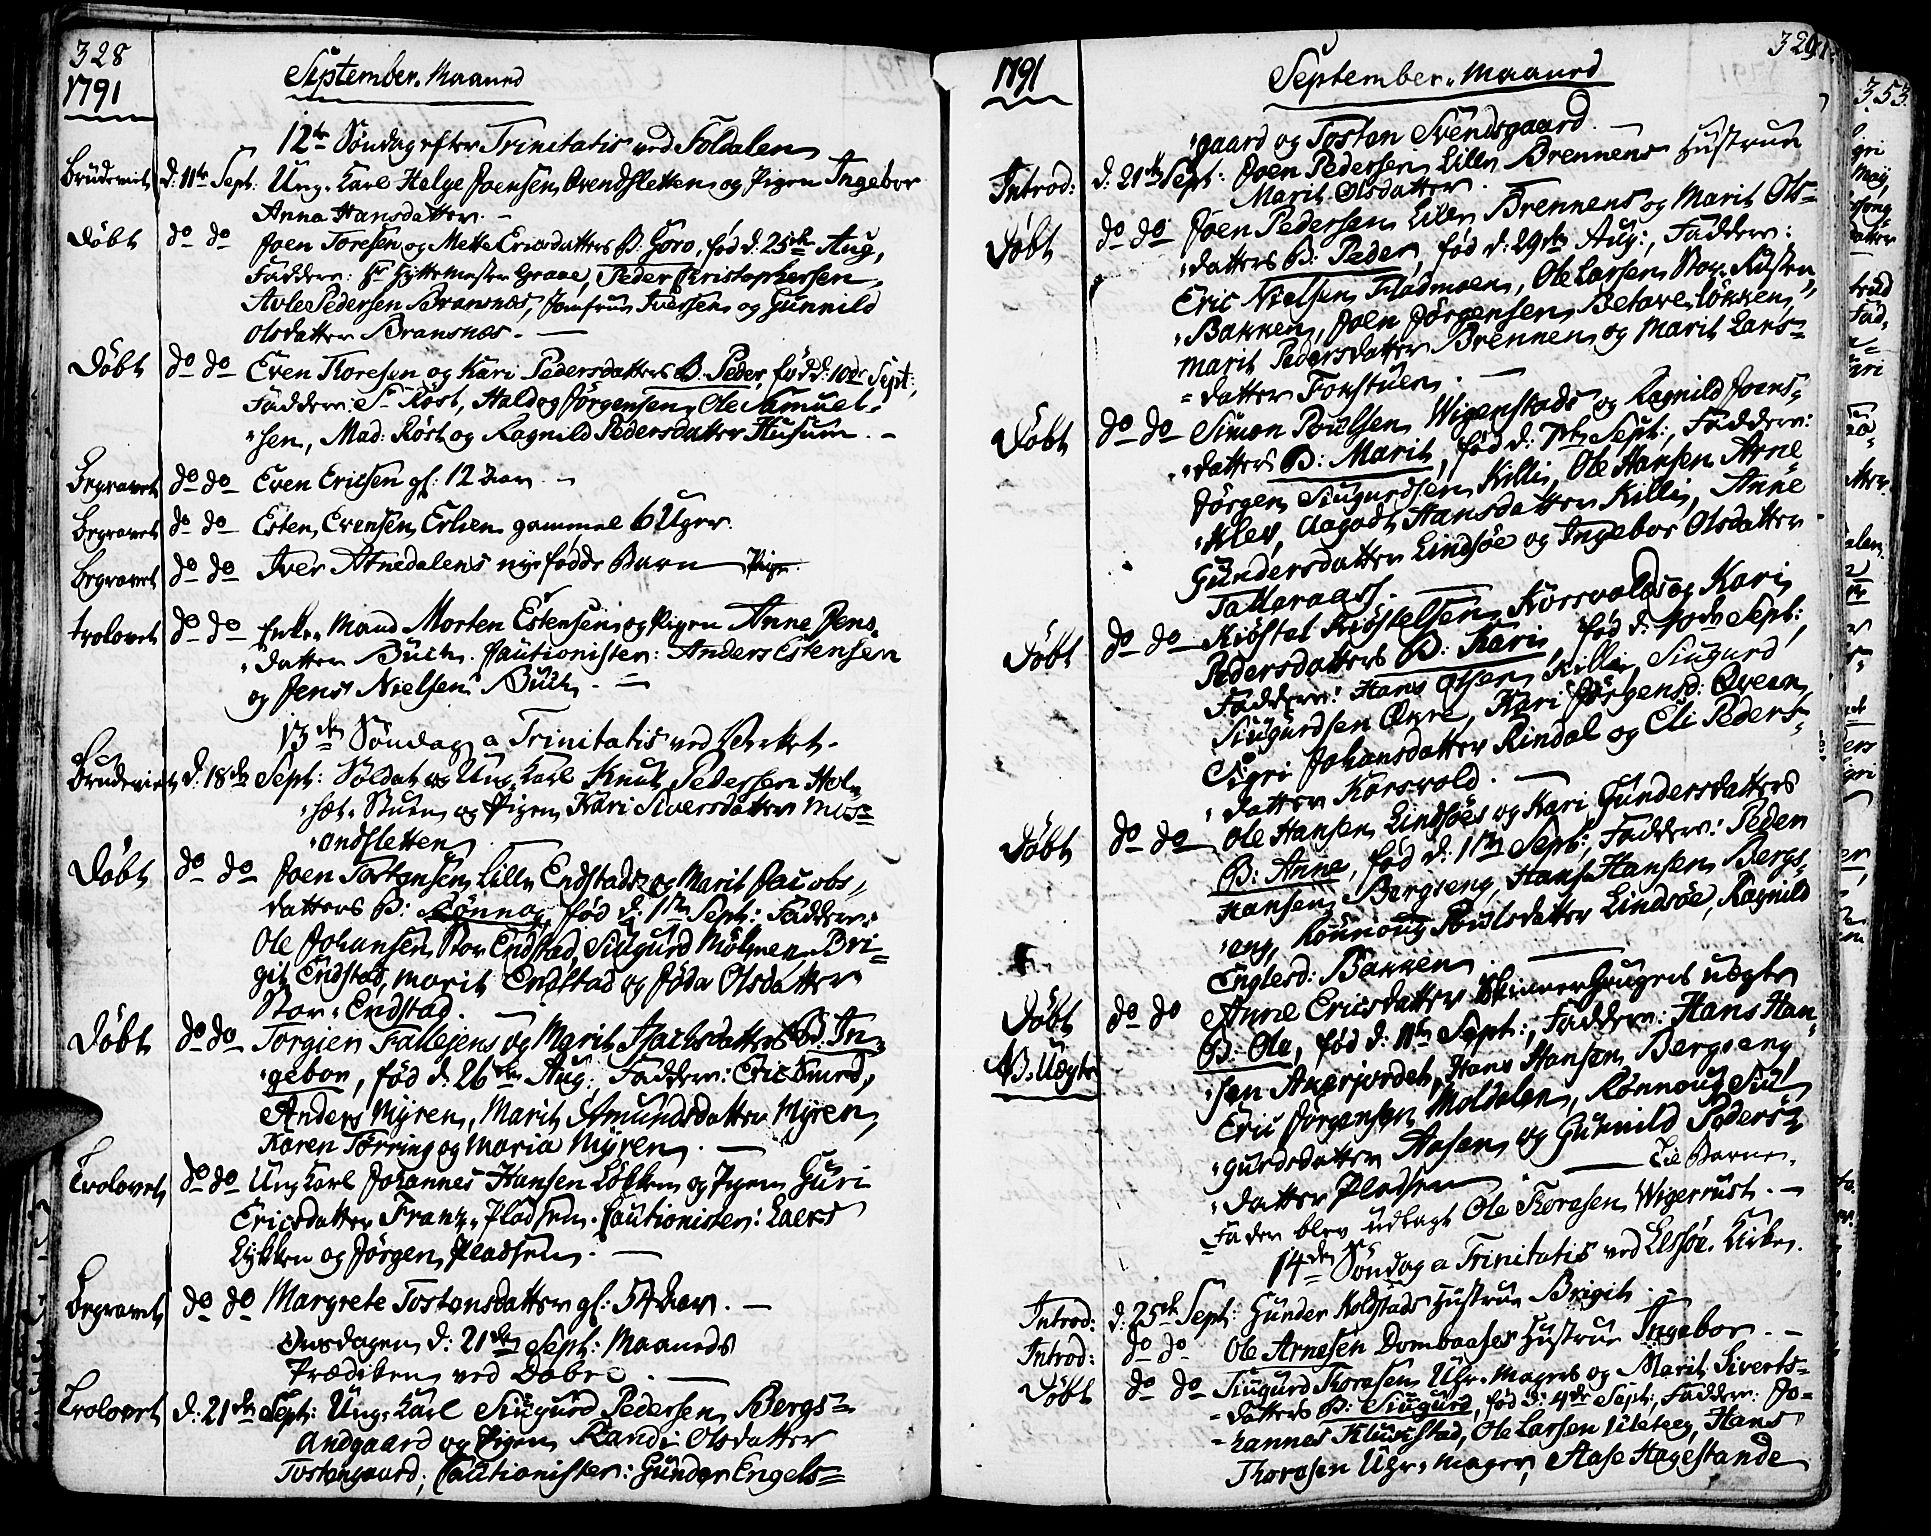 328
1791
September. Maaned
12te Søndag efter Trinitatis ved Foldalen
Brudeviet d: 11te Sept: Ung. Karl Helge Joensen Øvendsletten og Pigen Ingebor
Anna Hansdatter. —
Døbt do do Joen Toresen og Mette Ericsdatters B: Goro, fød d: 25de Aug,
Faddere: Hr Hyttemester Graae, Peder Christophersen,
Avle Pedersen Bransnæs, Jomfru Iversen og Gunnild
Olsdatter Bransnæs. —
Døbt do do Even Thoresen og Kari Pedersdatters B: Peder, fød d: 10de Sept:,
Faddere: Sr Røst, Haldog Jørgensen, Ole Samuel-
sen, Mad: Røst og Ragnild Pedersdatter Husum. —
Begravet do do Even Ericsen gl: 12 Aar. —
Begravet do do Esten Evensen Erlien gammel 6 Uger.
Begravet do do Iver Atnedalens nyefødde Barn Pige
trolovet do do Enke-Mand Morten Estensen og Pigen Anne Jens-
datter Buch. Cautionister: Anders Estensen
og Jens Nielsen Buch. —
13de Søndag a Trinitatis ved Verket.
Brudeviet d: 18de Sept: Soldat og Ung. Karl Knut Pedersen Hol-
sæt-Stuen og Pigen Kari Siversdatter Mos-
andsletten
Døbt do do Joen Tostensen Lille Endstads og Marit Jacobs-
datters B: Rønnog, fød d: 1te Sept: Faddere:
Ole Johansen Stor Endstad, Siugurd Mølmen, Bri-
git Endstad, Marit Endstad og Jøda Olsdatter
Stor-Endstad. —
Døbt do do Torgien Fallejens og Marit Jachsdatters B: In-
gebor, fød d: 26de Aug: Faddere: Eric Smed,
Anders Myren, Marit Amundsdatter Myren,
Karen Tørring og Maria Myren. —
Trolovet do do Ung Karl Johannes Hansen Løkken og Pigen Guri
Ericsdatter Franz-Pladsen. Cautionister: Laers
Løkken og Jørgen Pladsen. —
Begravet do do Margrete Tostensdatter gl: 54 Aar. —
Onsdagen d: 21de Sept: Maaneds
Prædiken ved Dobre. —
Trolovet d: 21de Sept: Ung. Karl Siugurd Pedersen Bergs-
andgaard og Pigen Randi Olsdatter
Tostengaard; Cautionister: Gunder Engels-
1791
September. Maaned
329
gaard og Tosten Svendsgaard. —
Introd: d: 21de Sept: Joen Pedersen Lille Brennens Hustrue
Marit Olsdatter.
Døbt do do Joen Pedersen Lille Brennens og Marit Ols-
datters B: Peder, fød d: 29de Aug:, Faddere:
Eric Nielsen Fladmoen, Ole Larsen Stor-Rusten
Bakken, Joen Jørgensen Betareløkken
Marit Pedersdatter Brennen og Marit Lars-
datter Tonstuen. —
Døbt do do Simon Poulsen Wigenstads og Ragnild Joens-
datters B: Marit, fød d: 7de Sept:, Faddere:
Jørgen Siugurdsen Killi, Ole Hansen Arne-
Klev, Aagodt Hansdatter Killi, Anne
Gundersdatter Lindsøe og Ingebor Olsdatter
Talleraass. —
Døbt do do Kiøstel Kiøstelsen Korsvolds og Kari
Pedersdatters B: Kari, fød d: 10de Sept:,
Faddere: Hans Olsen Killi, Siugurd
Siugurdsen Øvre, Kari Jørgensd: Qveen,
Sigri Johansdatter Rindal og Eli Peders-
datter Korsvold. —
Døbt do do Ole Hansen Lindsøes og Kari Gundersdatters
B: Anne, fød d: 1te Sept:, Faddere: Peder
Hansen Bergseng, Hans Hansen Bergs-
eng, Rønnoug Poulsdatter Lindsøe, Ragnild
Englesd: Bakken. —
Døbt do do Anne Ericsdatter Skinner Haugens uægte
B. Uægte B: Ole, fød d: 11te Sept:, Faddere: Hans Han-
sen Akerjordet, Hans Hansen Bergseng,
Eric Jørgensen Moldalen, Rønnoug Siu-
gurdsdatter Aasen og Gunnild Peders-
datter Pladsen — Til Barne-
Fader blev udlagt Ole Thoresen Wigerrust. —
14de Søndag a Trinitatis ved Lessøe Kirke.
Introd: d: 25de Sept: Gunder Holdstads Hustrue Brigit. —
Introd: do do Ole Arnesen Dombaases Hustrue Ingebor. —
Døbt do do Siugurd Thoresen Uhr-Magers og Marit Siverts-
datters B: Siugurd, fød d: 4de Sept:, Faddere: Jo-
hannes Klukstad, Ole Larsen Lileteeg, Hans
Thoresen Uhr-Mager, Aase Hagestande
353